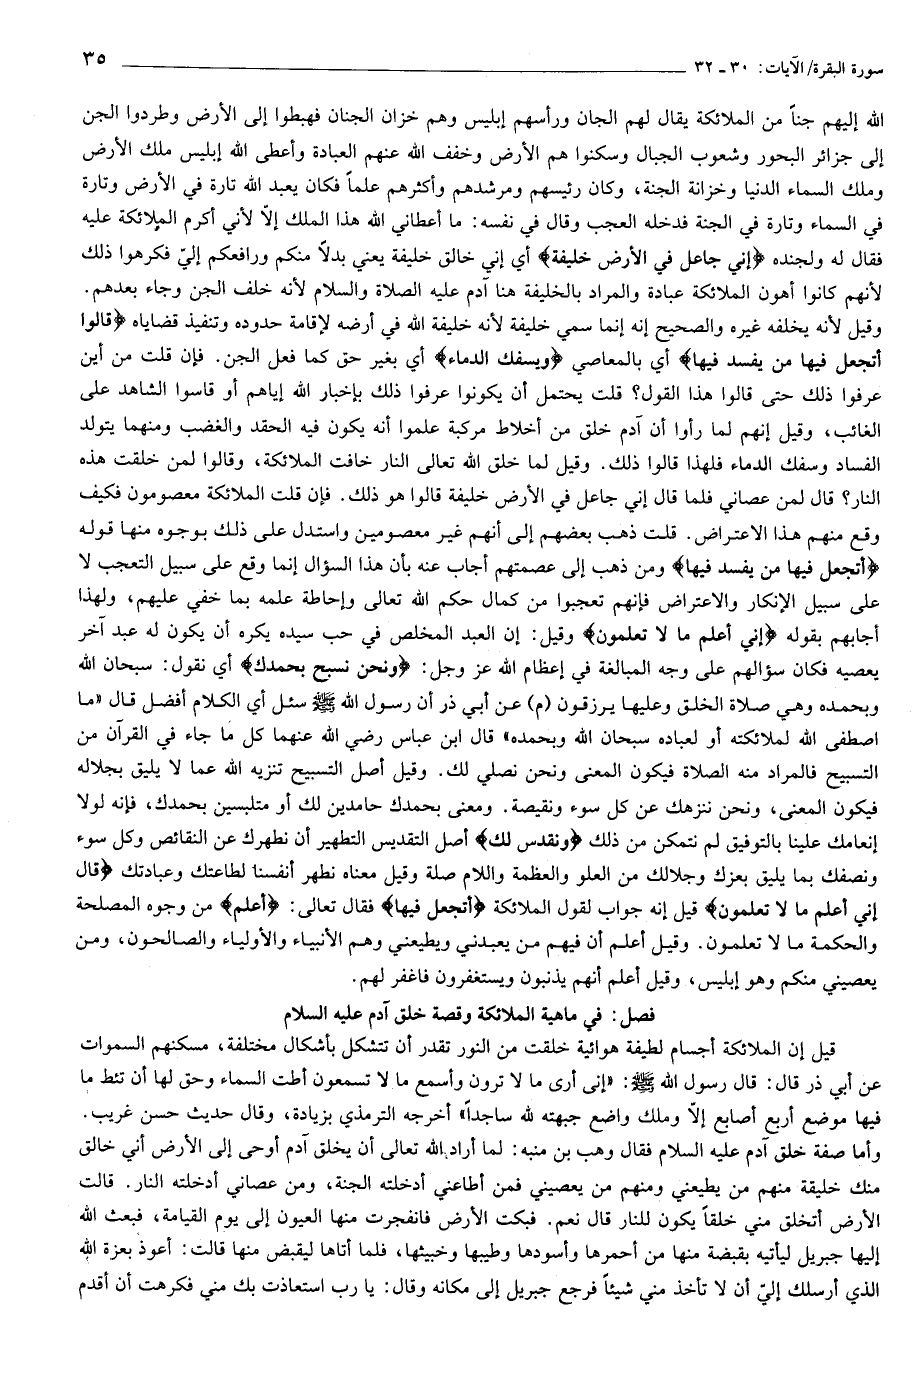 سورة البقرة/ الآيات: ٣٠ ـ ٣٢
٣٥
الله إليهم جناً من الملائكة يقال لهم الجان ورأسهم إبليس وهم خزان الجنان فهبطوا إلى الأرض وطردوا الجن
إلى جزائر البحور وشعوب الجبال وسكنوا هم الأرض وخفف الله عنهم العبادة وأعطى الله إبليس ملك الأرض
وملك السماء الدنيا وخزانة الجنة، وكان رئيسهم ومرشدهم وأكثرهم علماً فكان يعبد الله تارة في الأرض وتارة
في السماء وتارة في الجنة فدخله العجب وقال في نفسه: ما أعطاني الله هذا الملك إلّا لأني أكرم الملائكة عليه
فقال له ولجنده ﴿إني جاعل في الأرض خليفة﴾ أي إني خالق خليفة يعني بدلاً منكم ورافعكم إليّ فكرهوا ذلك
لأنهم كانوا أهون الملائكة عبادة والمراد بالخليفة هنا آدم عليه الصلاة والسلام لأنه خلف الجن وجاء بعدهم.
وقيل لأنه يخلفه غيره والصحيح إنه إنما سمي خليفة لأنه خليفة الله في أرضه لإقامة حدوده وتنفيذ قضاياه ﴿قالوا
أتجعل فيها من يفسد فيها﴾ أي بالمعاصي ﴿ويسفك الدماء﴾ أي بغير حق كما فعل الجن. فإن قلت من أين
عرفوا ذلك حتى قالوا هذا القول؟ قلت يحتمل أن يكونوا عرفوا ذلك بإخبار الله إياهم أو قاسوا الشاهد على
الغائب، وقيل إنهم لما رأوا أن آدم خلق من أخلاط مركبة علموا أنه يكون فيه الحقد والغضب ومنهما يتولد
الفساد وسفك الدماء فلهذا قالوا ذلك. وقيل لما خلق الله تعالى النار خافت الملائكة، وقالوا لمن خلقت هذه
النار؟ قال لمن عصاني فلما قال إني جاعل في الأرض خليفة قالوا هو ذلك. فإن قلت الملائكة معصومون فكيف
وقع منهم هذا الاعتراض. قلت ذهب بعضهم إلى أنهم غير معصومين واستدل على ذلك بوجوه منها قوله
﴿أتجعل فيها من يفسد فيها﴾ ومن ذهب إلى عصمتهم أجاب عنه بأن هذا السؤال إنما وقع على سبيل التعجب لا
على سبيل الإنكار والاعتراض فإنهم تعجبوا من كمال حكم الله تعالى وإحاطة علمه بما خفي عليهم، ولهذا
أجابهم بقوله ﴿إني أعلم ما لا تعلمون﴾ وقيل: إن العبد المخلص في حب سيده يكره أن يكون له عبد آخر
يعصيه فكان سؤالهم على وجه المبالغة في إعظام الله عز وجل: ﴿ونحن نسبح بحمدك﴾ أي نقول: سبحان الله
وبحمده وهي صلاة الخلق وعليها يرزقون (م) عن أبي ذر أن رسول الله ﷺ سئل أي الكلام أفضل قال «ما
اصطفى الله لملائكته أو لعباده سبحان الله وبحمده» قال ابن عباس رضي الله عنهما كل ما جاء في القرآن من
التسبيح فالمراد منه الصلاة فيكون المعنى ونحن نصلي لك. وقيل أصل التسبيح تنزيه الله عما لا يليق بجلاله
فيكون المعنى، ونحن ننزهك عن كل سوء ونقيصة. ومعنى بحمدك حامدين لك أو متلبسين بحمدك، فإنه لولا
إنعامك علينا بالتوفيق لم نتمكن من ذلك ﴿ونقدس لك﴾ أصل التقديس التطهير أن نطهرك عن النقائص وكل سوء
ونصفك بما يليق بعزك وجلالك من العلو والعظمة واللام صلة وقيل معناه نطهر أنفسنا لطاعتك وعبادتك ﴿قال
إني أعلم ما لا تعلمون﴾ قيل إنه جواب لقول الملائكة ﴿أتجعل فيها﴾ فقال تعالى: ﴿أعلم﴾ من وجوه المصلحة
والحكمة ما لا تعلمون. وقيل أعلم أن فيهم من يعبدني ويطيعني وهم الأنبياء والأولياء والصالحون، ومن
يعصيني منكم وهو إبليس، وقيل أعلم أنهم يذنبون ويستغفرون فاغفر لهم.
فصل: في ماهية الملائكة وقصة خلق آدم عليه السلام
قيل إن الملائكة أجسام لطيفة هوائية خلقت من النور تقدر أن تتشكل بأشكال مختلفة، مسكنهم السموات
عن أبي ذر قال: قال رسول الله ﷺ: «إنى أرى ما لا ترون وأسمع ما لا تسمعون أطت السماء وحق لها أن تئط ما
فيها موضع أربع أصابع إلّا وملك واضع جبهته لله ساجداً» أخرجه الترمذي بزيادة، وقال حديث حسن غريب.
وأما صفة خلق آدم عليه السلام فقال وهب بن منبه: لما أراد الله تعالى أن يخلق آدم أوحى إلى الأرض أني خالق
منك خليقة منهم من يطيعني ومنهم من يعصيني فمن أطاعني أدخلته الجنة، ومن عصاني أدخلته النار. قالت
الأرض أتخلق مني خلقاً يكون للنار قال نعم. فبكت الأرض فانفجرت منها العيون إلى يوم القيامة، فبعث الله
إليها جبريل ليأتيه بقبضة منها من أحمرها وأسودها وطيبها وخبيثها، فلما أتاها ليقبض منها قالت: أعوذ بعزة الله
الذي أرسلك إليّ أن لا تأخذ مني شيئاً فرجع جبريل إلى مكانه وقال: يا رب استعاذت بك مني فكرهت أن أقدم